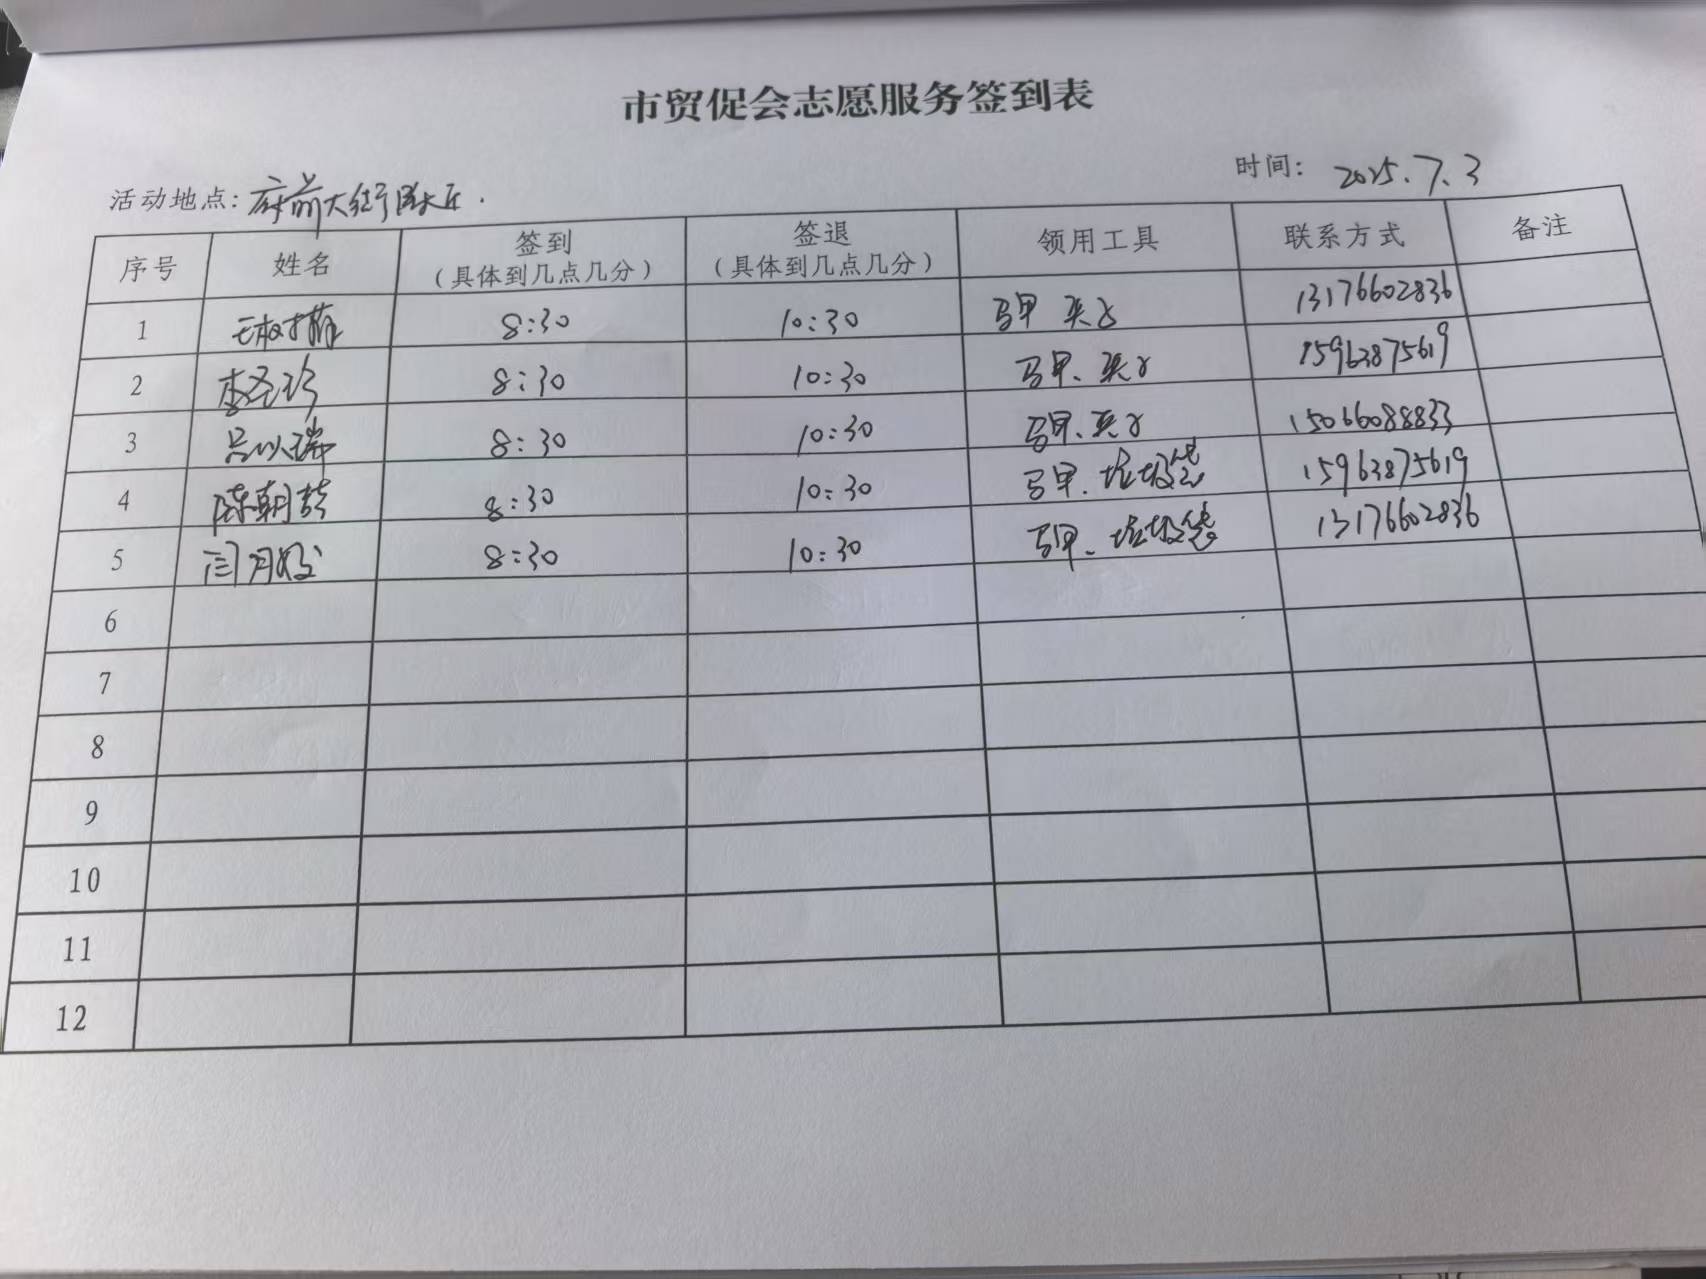 市贸促会志愿服务签到表
活动地点: 府前大街 时间: 2025.7.3
序号 姓名 签到（具体到几点几分） 签退（具体到几点几分） 领用工具 联系方式 备注
1 8:30 10:30 马甲 夹子 13176602836
2 李圣珍 8:30 10:30 马甲、夹子 15963875619
3 吕以瑞 8:30 10:30 马甲、夹子 15066088833
4 陈朝 8:30 10:30 马甲、垃圾袋 15963875619
5 闫月姣 8:30 10:30 马甲、垃圾袋 13176602836
6
7
8
9
10
11
12